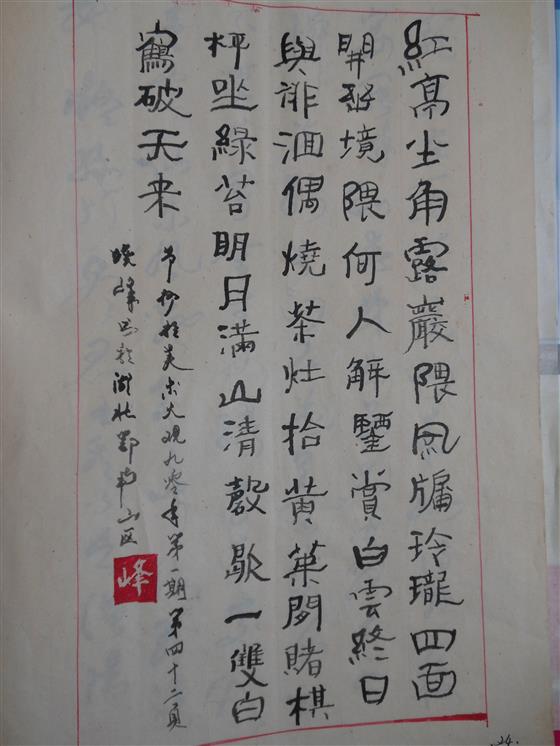 紅亭尘角露巖隈風牖玲瓏四面
開境隈何人解賞白雲終日
與誹洄偶燒茶灶拾黄葉閒賭棋
枰坐綠苔明月滿山清磬歇一雙白
鶴破天来
节抄於美术大观九零年第一期第四十二頁
晓峰书於湖北鄂南山区
峰
24.